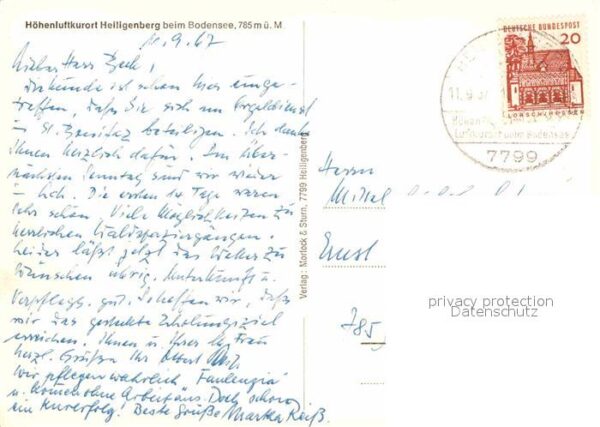 Höhenluftkurort Heiligenberg beim Bodensee, 785 m ü. M
11.9.67
Lieber Herr
die Kunde ist schon hier einge-
troffen, daß Sie sich am Orgeldienst
in St. beteiligen. Ich danke
Ihnen herzlich dafür. Am über-
nächsten Sonntag sind wir wieder
Die ersten 10 Tage waren
sehr schön. Viele Möglichkeiten zu
herrlichen Waldspaziergängen.
Leider läßt jetzt das Wetter zu
wünschen übrig. Unterkunft u.
Verpflegg. gut. hoffen wir, daß
wir das gesteckte Erholungsziel
erreichen. Ihnen u. Ihrer lb. Frau
herzl. Grüße Ihr
Wir pflegen wahrlich "Faulengia"
u. Arbeit aus. Doch schon
ein Kurerfolg! Beste Grüße Martha Reiß.
Verlag: Morlock & Sturn, 7799 Heiligenberg
DEUTSCHE BUNDESPOST
20
LORSCH/HESSEN
11.9.67
Luftkurort beim Bodensee
7799
Herrn
Ernst
785
privacy protection
Datenschutz